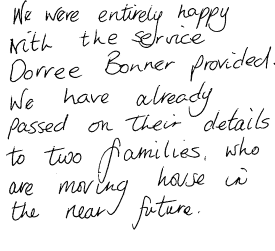 We were entirely happy
with the service
Dorree Bonner provided.
We have already
passed on their details
to two families, who
are moving house in
the near future.